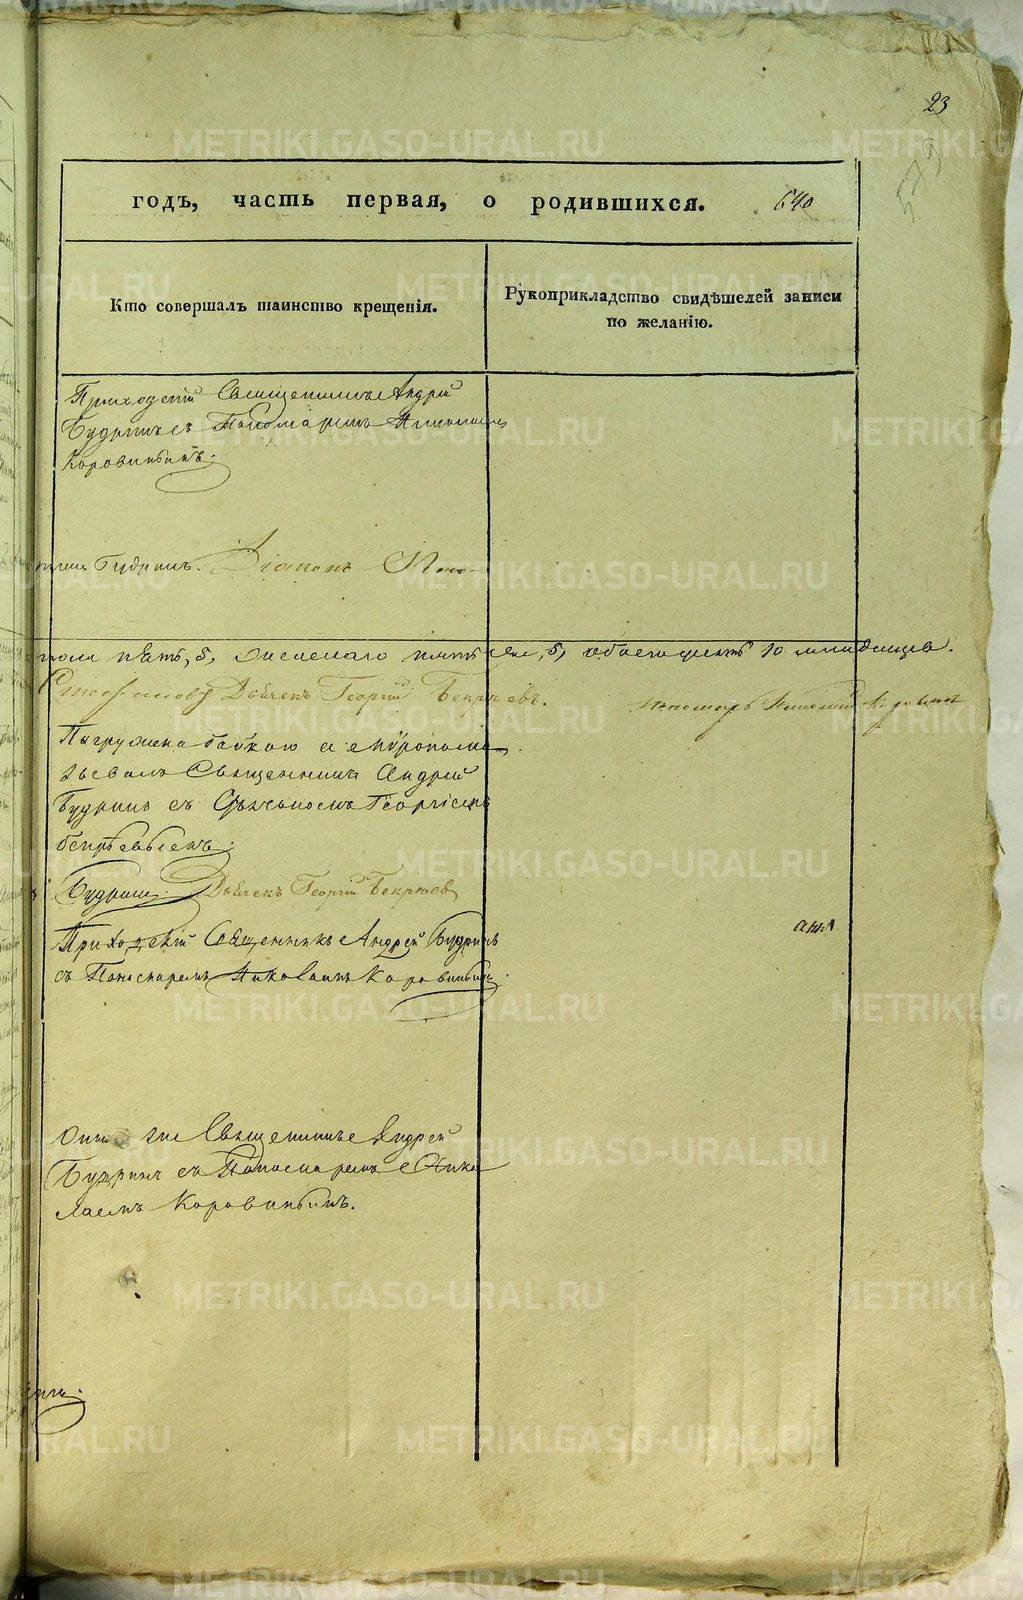 23
579
годъ, часть первая, о родившихся. 640
Кто совершалъ таинство крещенія.
Рукоприкладство свидѣтелей записи
по желанію.
Приходскій Священникъ Андрей
Будринъ съ Пономаремъ Николаемъ
Коровинымъ.
Будринъ. Діаконъ
пола пять, 5, женскаго пять, 5, обоего десять 10 младенцевъ.
Дьячекъ Георгій Бекряевъ.
Пономарь Николай
Погружена бабкою а
Священникъ Андрей
Будринъ съ Дьячькомъ Георгіемъ
Будринъ. Дьячекъ Георгій Бекряев
Приходскій Священникъ Андрей Будринъ
съ Пономаремъ Николаемъ Коровинымъ.
Священникъ Андрей
Будринъ съ Пономаремъ Нико
лаемъ Коровинымъ.
METRIKI.GASO-URAL.RU